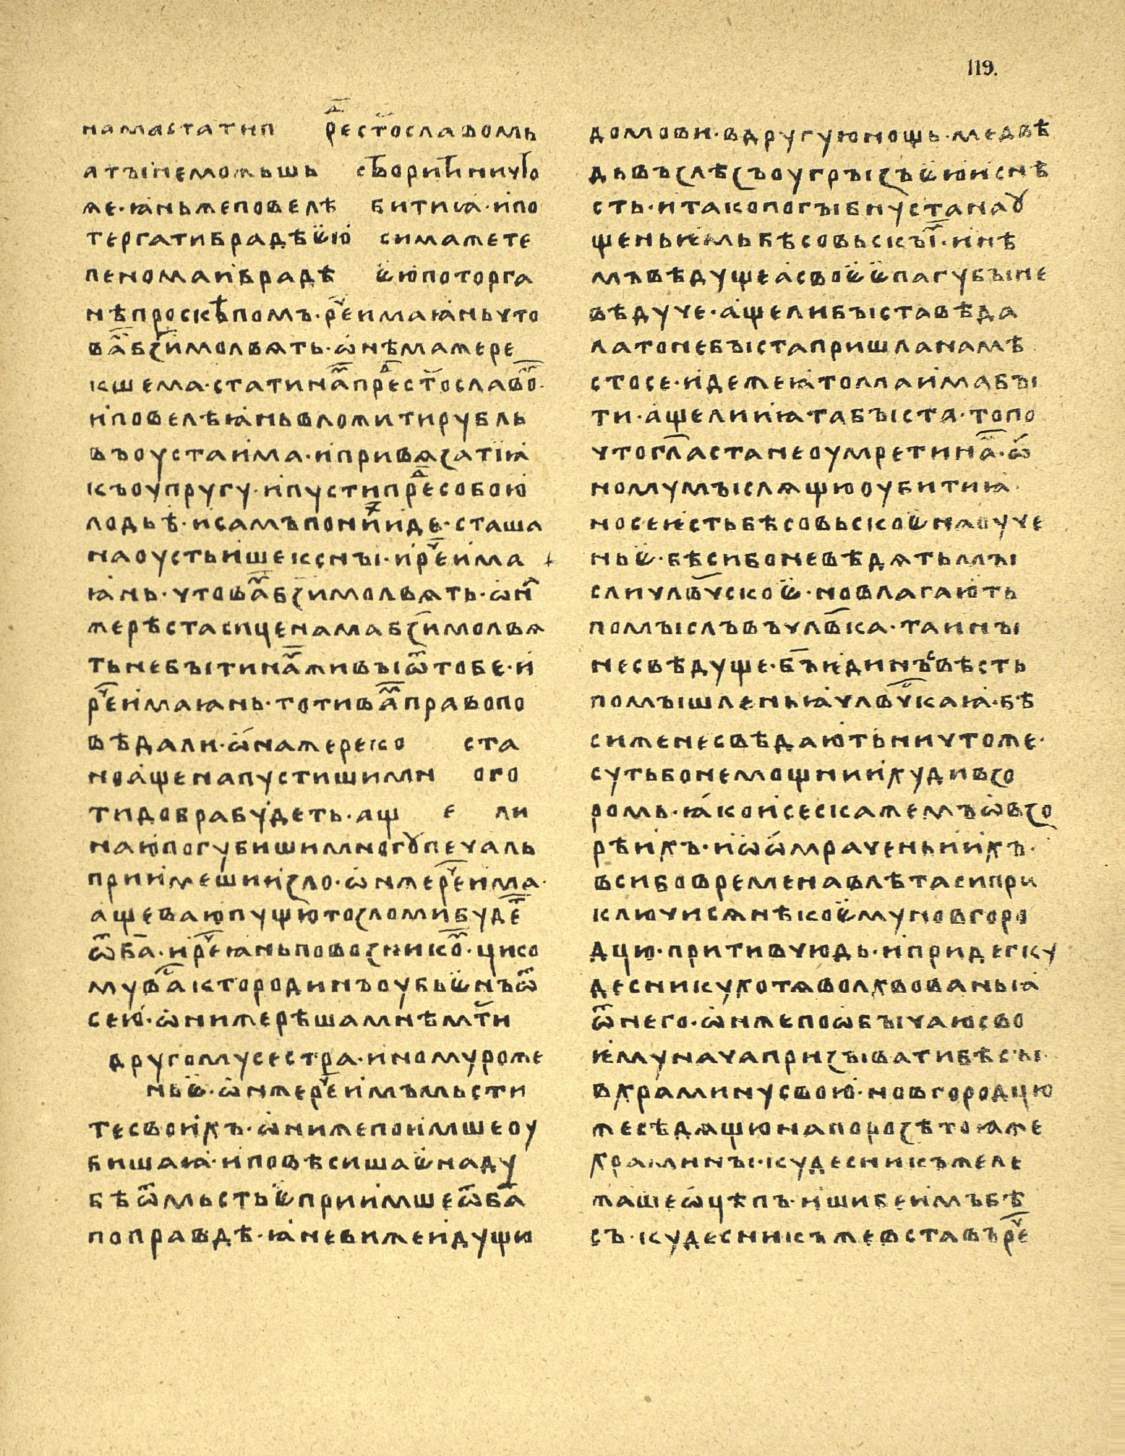 119.
намастатип рⷣестославомь
атыінеможьшь створитиничто
же·ꙗньжеповелѣ битиꙗ·ипо
тергатибрадѣѥю симажете
пеномаибрадѣ ѥюпоторга
нѣпроскѣпомъ·рⷱ҇еимаꙗньчто
ваⷨбз҃имолвять·ѡнѣмажере
кшема·статинаⷨпрⷣестославоⷨ·
иповелѣꙗньвложитирубль
въоустаима·ипривѧзатїꙗ
къоупругу·ипустипрⷣесобою
лодьѣ·исамъпониⷯиде·сташа
наоустьишекснꙑ·ирⷱ҇еима
ꙗнь·чтоваⷨбз҃имолвять·ѡнⷤ
жерѣстасиценамабз҃имолвя
тьнебꙑтинаⷨживꙑѿтобе·и
рⷱ҇еимаꙗнь·тотиваⷨправопо
вѣдали·ѡнажереко ста
ноащенапустишимн ого
тидобрабудеть·ащ е ли
наюпогубишимногꙋпечаль
приимешиизло·ѡнжерⷱ҇еима·
ащеваюпущютозломибудеⷮ
ѿба҃·ирⷱ҇еꙗньповозникоⷨ·цисо
муваⷭ҇ктородинъоубьѥнъѿ
сею·ѡнижерѣшамнѣмт҃и
другомусестра·иномуроже
ньѥ·ѡнжерⷱ҇еимъмьсти
тесвоихъ·ѡнижепоимшеоу
бишаꙗ·иповѣсишаѥнаду
бѣѿмьстьѥприимшеѿба҃
поправдѣ·ꙗневижеидущи
домови·вдругуюнощь·медвѣ
дьвъзлѣзъоугрꙑзъѥюиснѣ
сть·итакопогꙑбнустанаꙋ
щеньѥмьбѣсовьскꙑⷨ·инѣ
мъвѣдущеасвоѥѥпагубꙑне
вѣдуче·ащелибꙑставѣда
латонебꙑстапришланамѣ
стосе·идежеꙗтомаимабꙑ
ти·ащелииꙗтабꙑста·топо
чтогл҃астанеоумретинаⷨ·ѡ
номумꙑслящюоубитиꙗ·
носеѥстьбѣсовьскоѥнаоуче
ньѥ·бѣсибоневѣдятьмꙑ
сличл҃вчскоѥ·новлагають
помꙑслъвъчл҃вка·таинꙑ
несвѣдуще·бъ҃ѥдинъⷭвѣсть
помꙑшленьꙗчл҃вчⷭ҇каꙗ·бѣ
сиженесвѣдаютьничтоже·
сутьбонемощнииихудивзо
ромь·ꙗкоисескажемъѡвзо
рѣихъ·иѡѡмраченьиихъ·
всибовременавлѣтасипри
ключисянѣкоѥмуновгоро
дцю·притивчюдь·ипридегку
десникухотяволхвованьꙗ
ѿнего·ѡнжепоѡбꙑчаюсво
ѥмуначапризꙑватибѣсꙑ·
вхраминусвою·новгородцю
жесѣдящюнапорозѣтоꙗже
храминꙑ·кудесникъжеле
жашеѡцѣпъ·ишибеимъбѣ
съ·кудесникъжевставърⷱ҇е